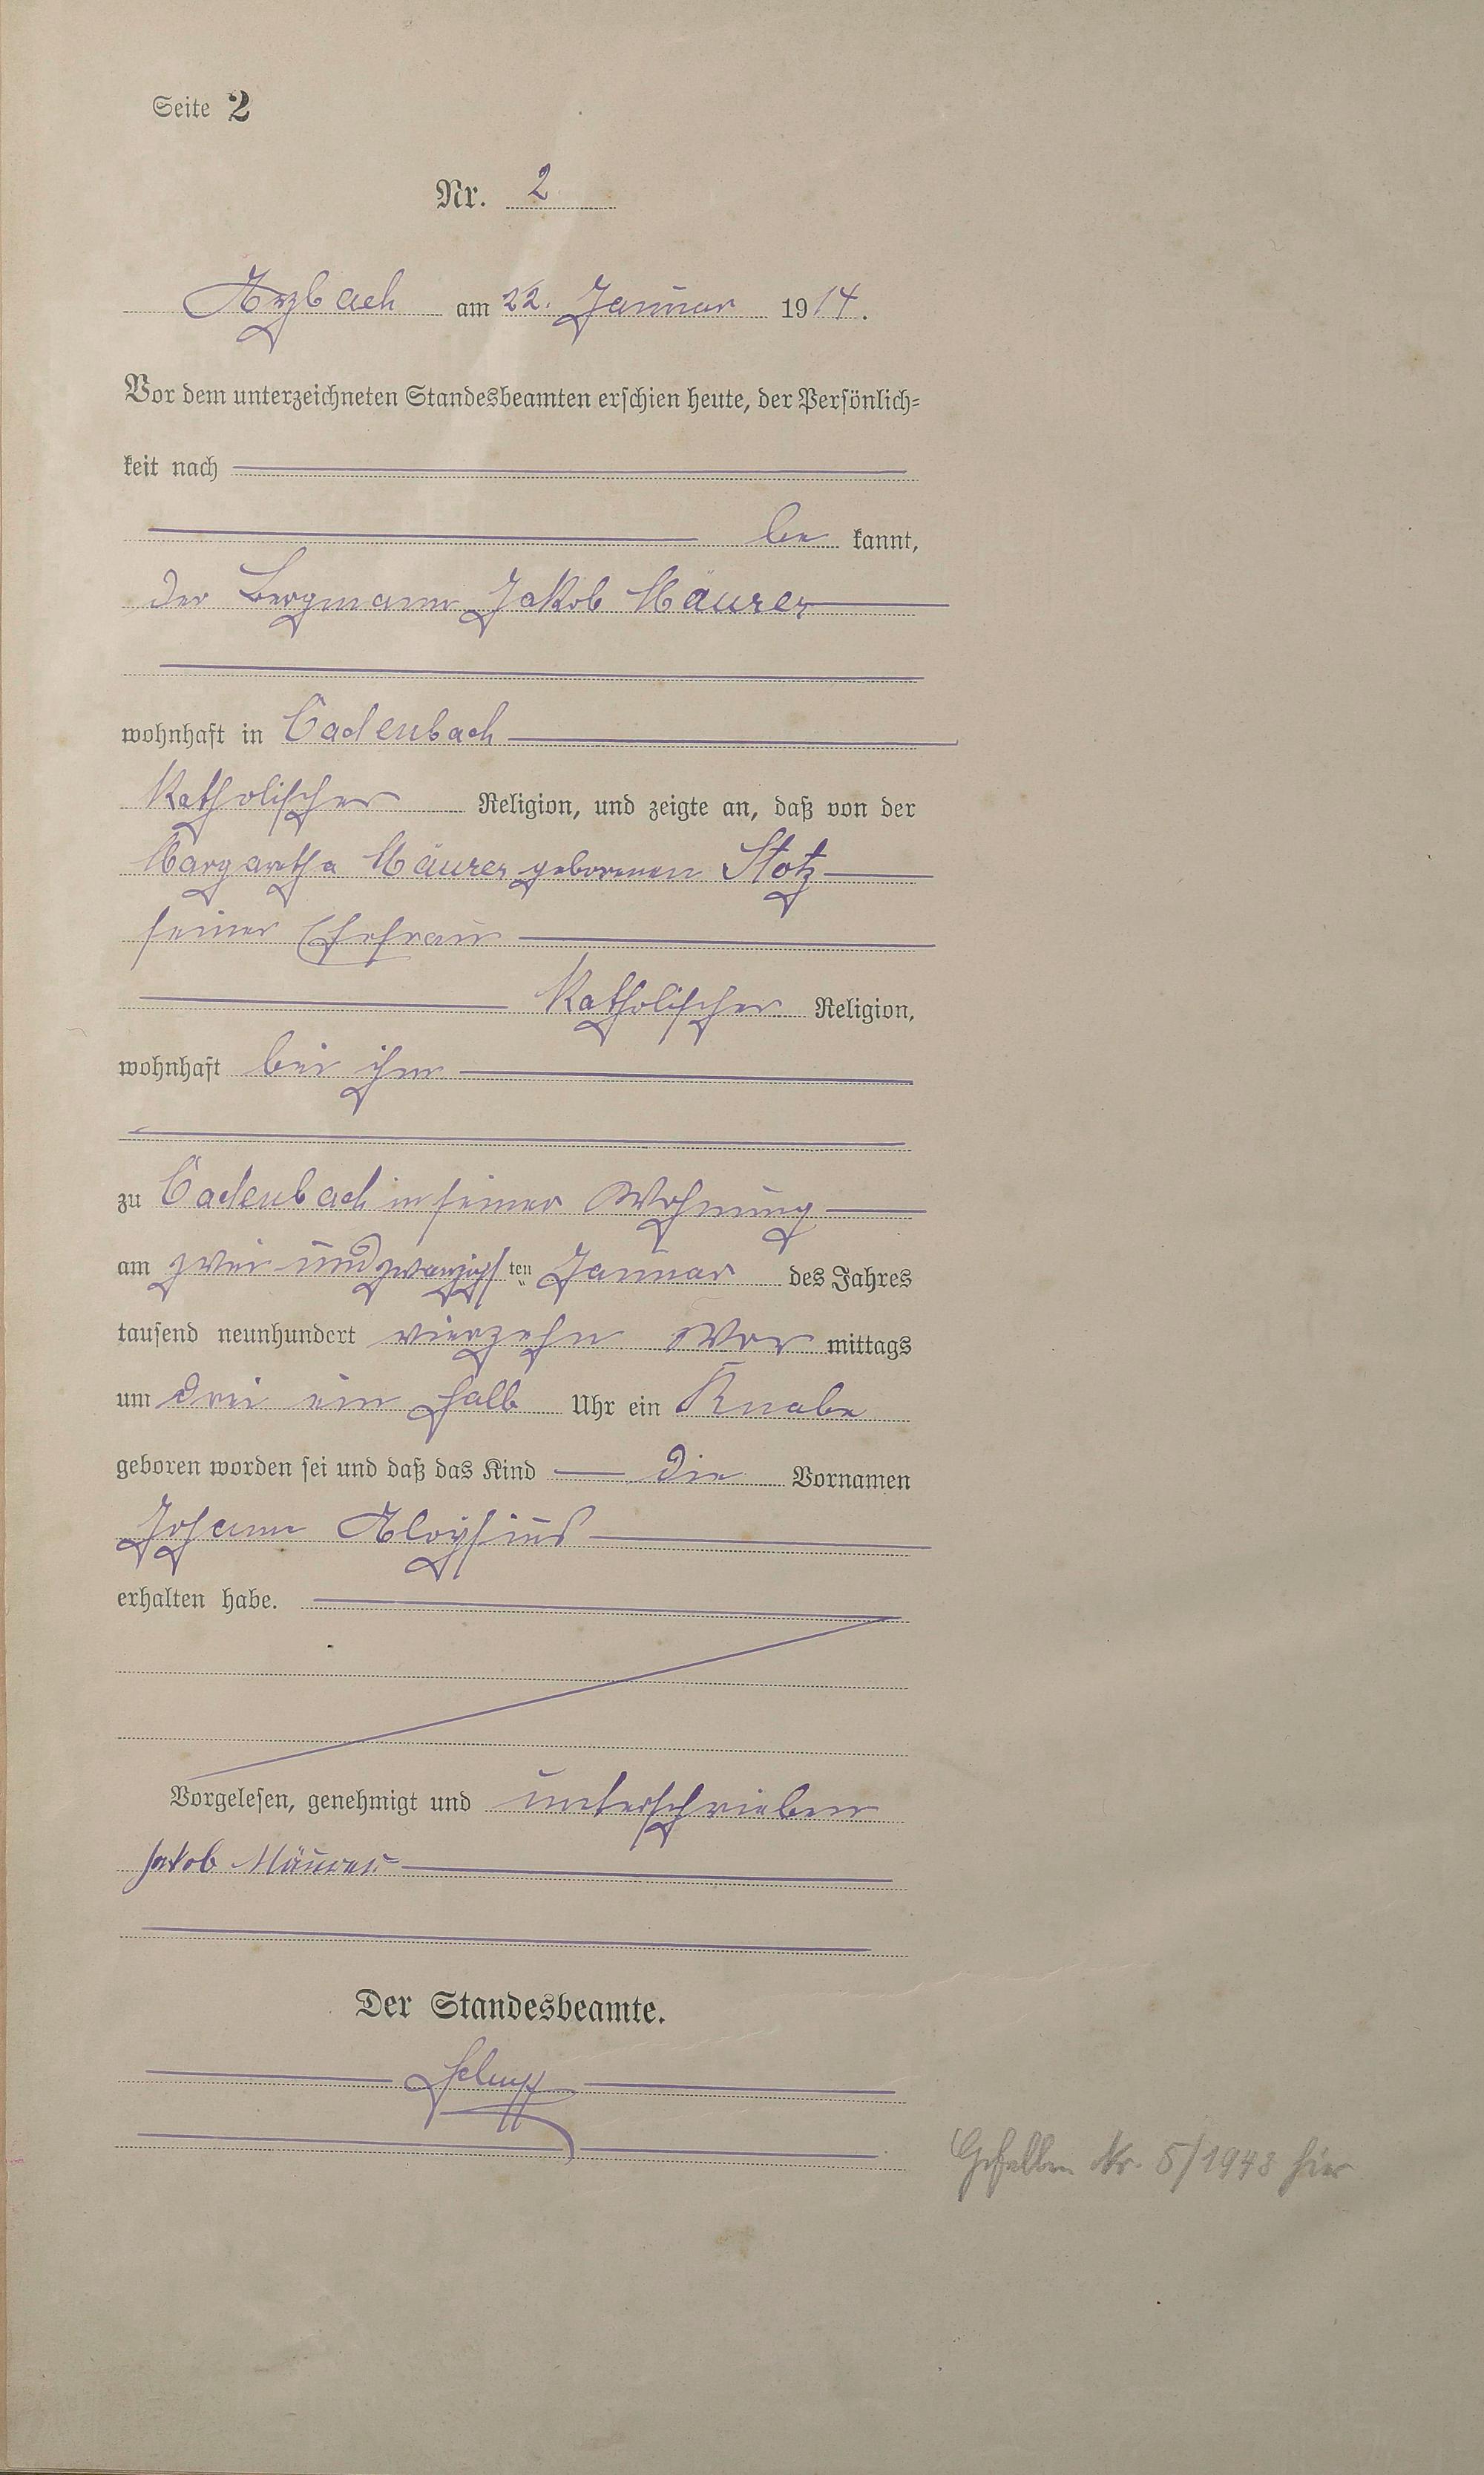 Seite 2
Nr. 2
Arzbach am 22. Januar 1914.
Vor dem unterzeichneten Standesbeamten erschien heute, der Persönlich=
keit nach
be kannt,
der Bergmann Jakob Mäurer
wohnhaft in Cadenbach
Katholischer Religion, und zeigte an, daß von der
Margaretha Mäurer geborenen Stotz
seiner Ehefrau
Katholischer Religion,
wohnhaft bei ihm
zu Cadenbach in seiner Wohnung
am zwei und zwanzigsten Januar des Jahres
tausend neunhundert vierzehn Vor mittags
um drei ein halb Uhr ein Knabe
geboren worden sei und daß das Kind die Vornamen
Johann Aloysius
erhalten habe.
Vorgelesen, genehmigt und unterschrieben
Jakob Mäurer
Der Standesbeamte.
Gefallen Nr. 5/1943 hier